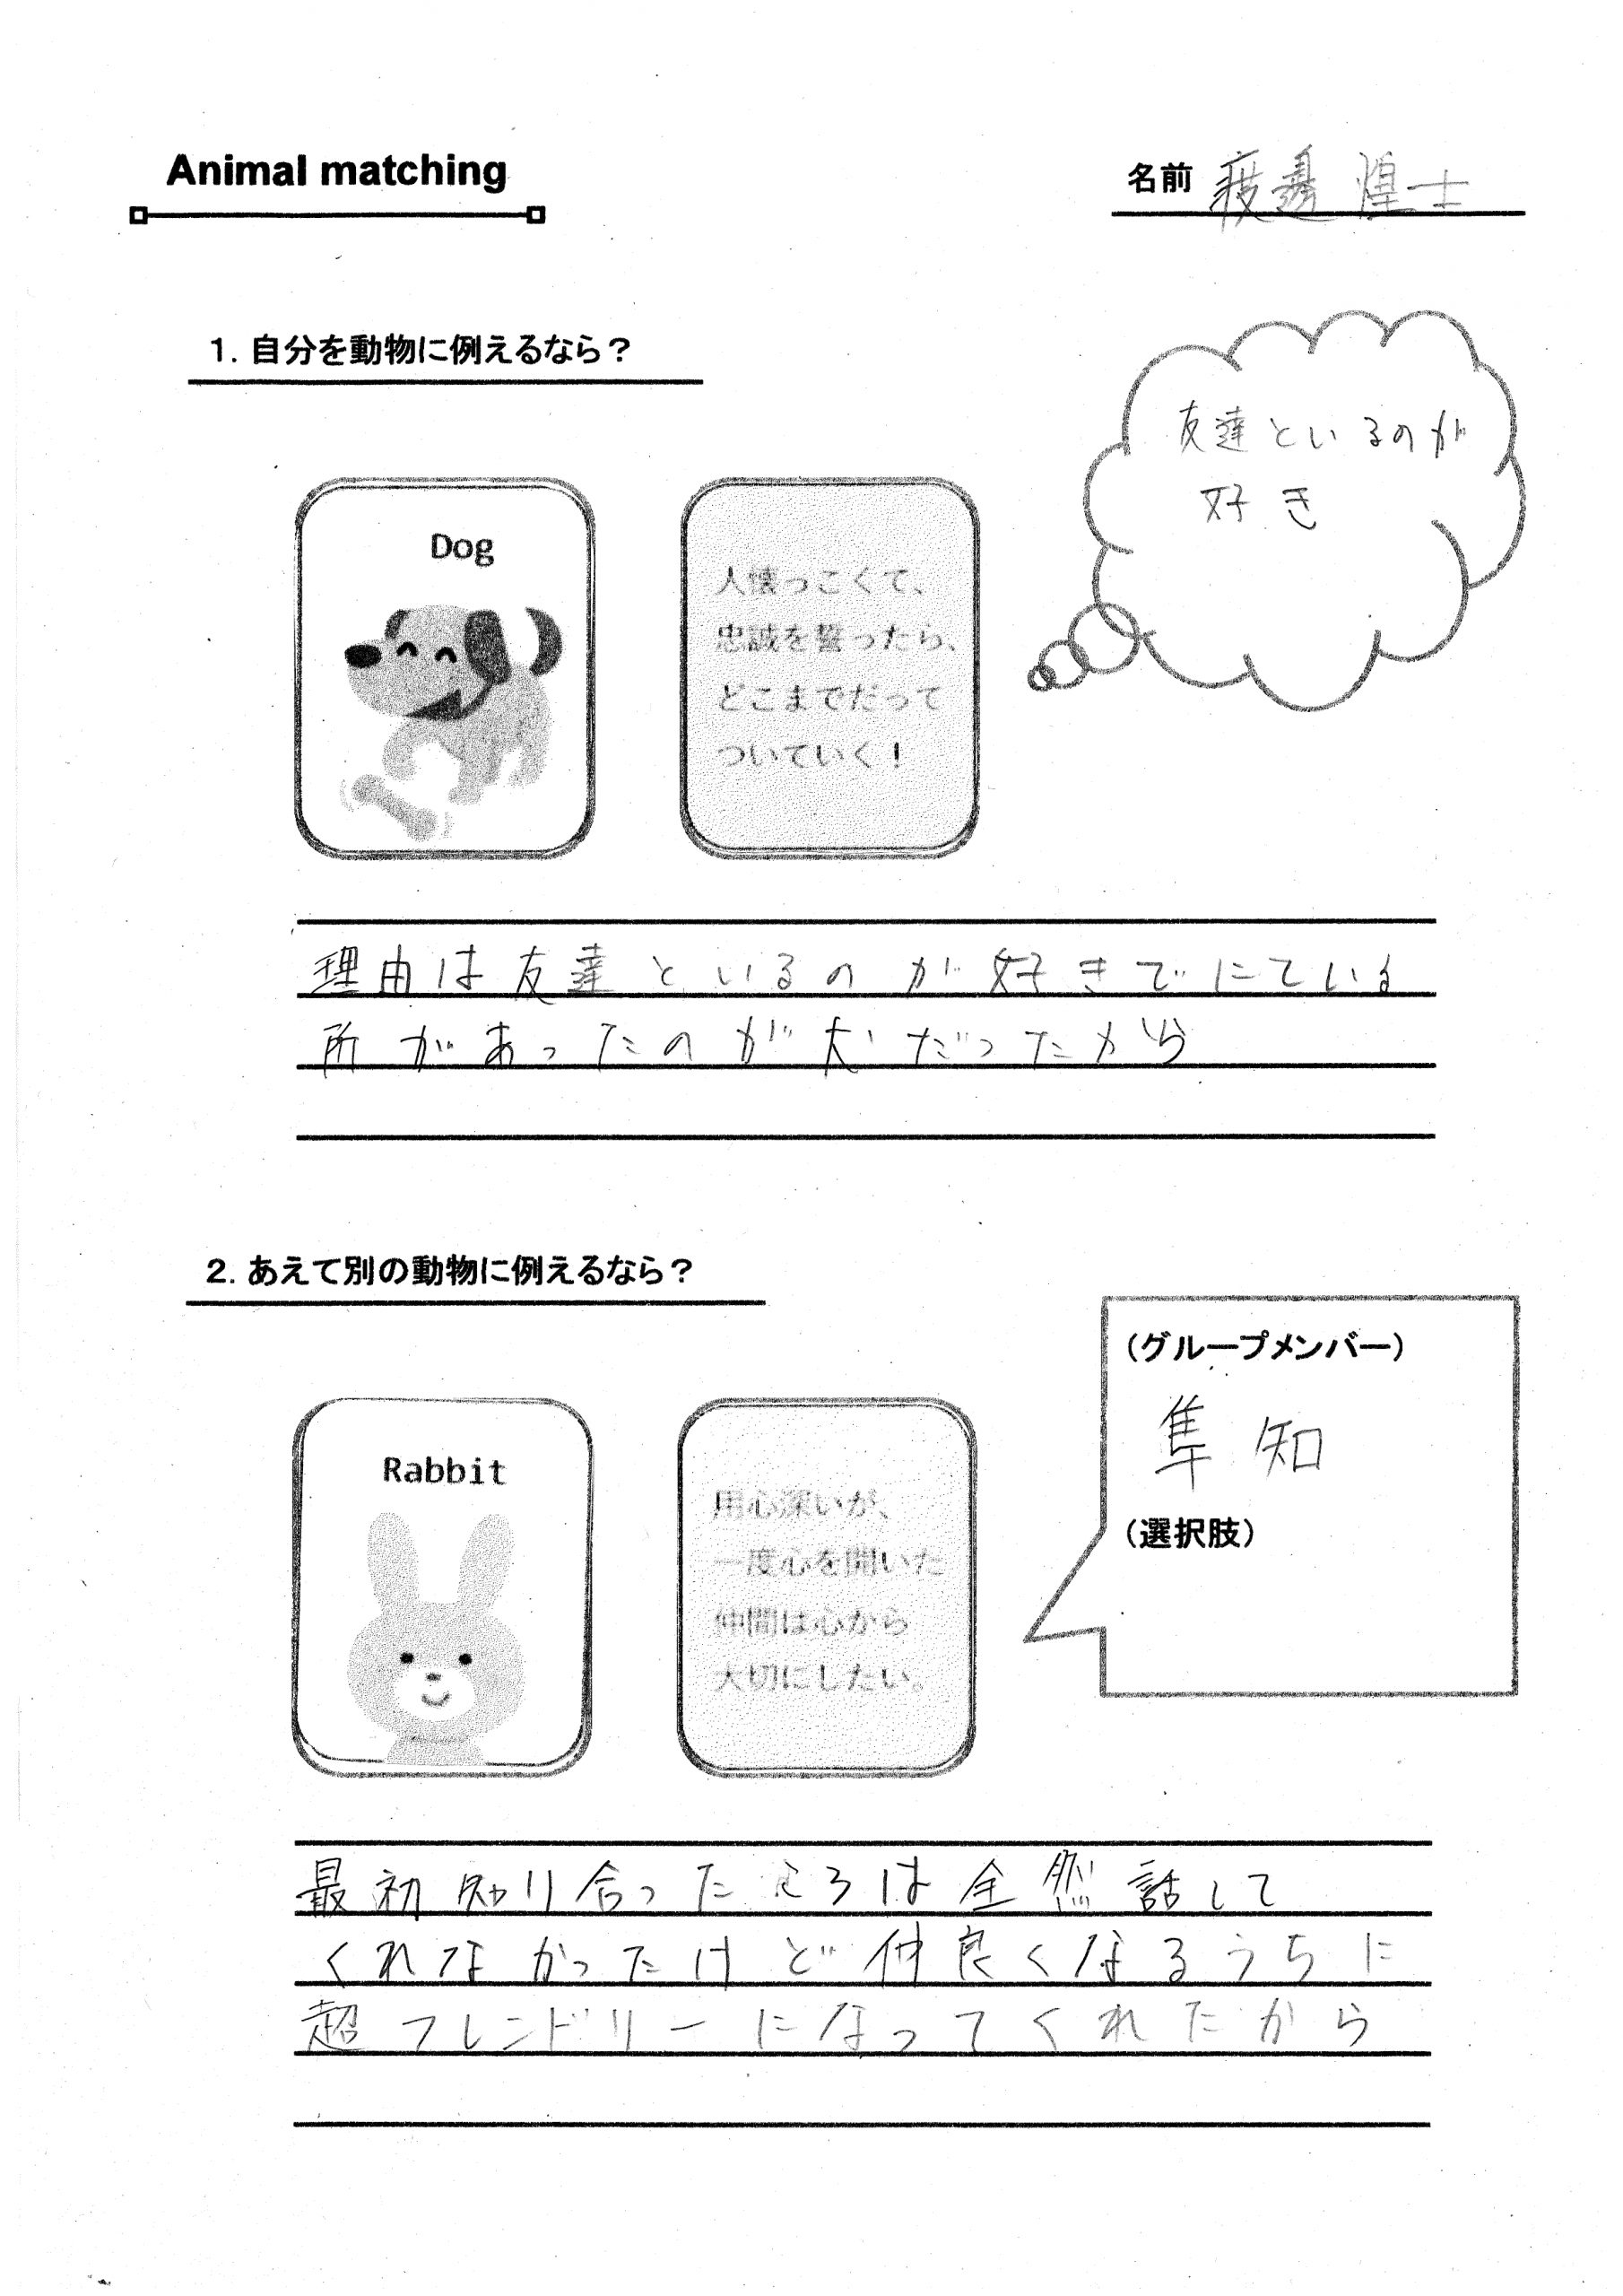 Animal matching
名前 渡邉 煌士
1. 自分を動物に例えるなら?
友達といるのが
好き
Dog
人懐っこくて、
忠誠を誓ったら、
どこまでだって
ついていく!
理由は友達といるのが好きでにている
所があったのが犬だったから
2. あえて別の動物に例えるなら?
(グループメンバー)
隼知
(選択肢)
Rabbit
用心深いが、
一度心を開いた
仲間は心から
大切にしたい。
最初知り合ったころは全然話して
くれなかったけど仲良くなるうちに
超フレンドリーになってくれたから